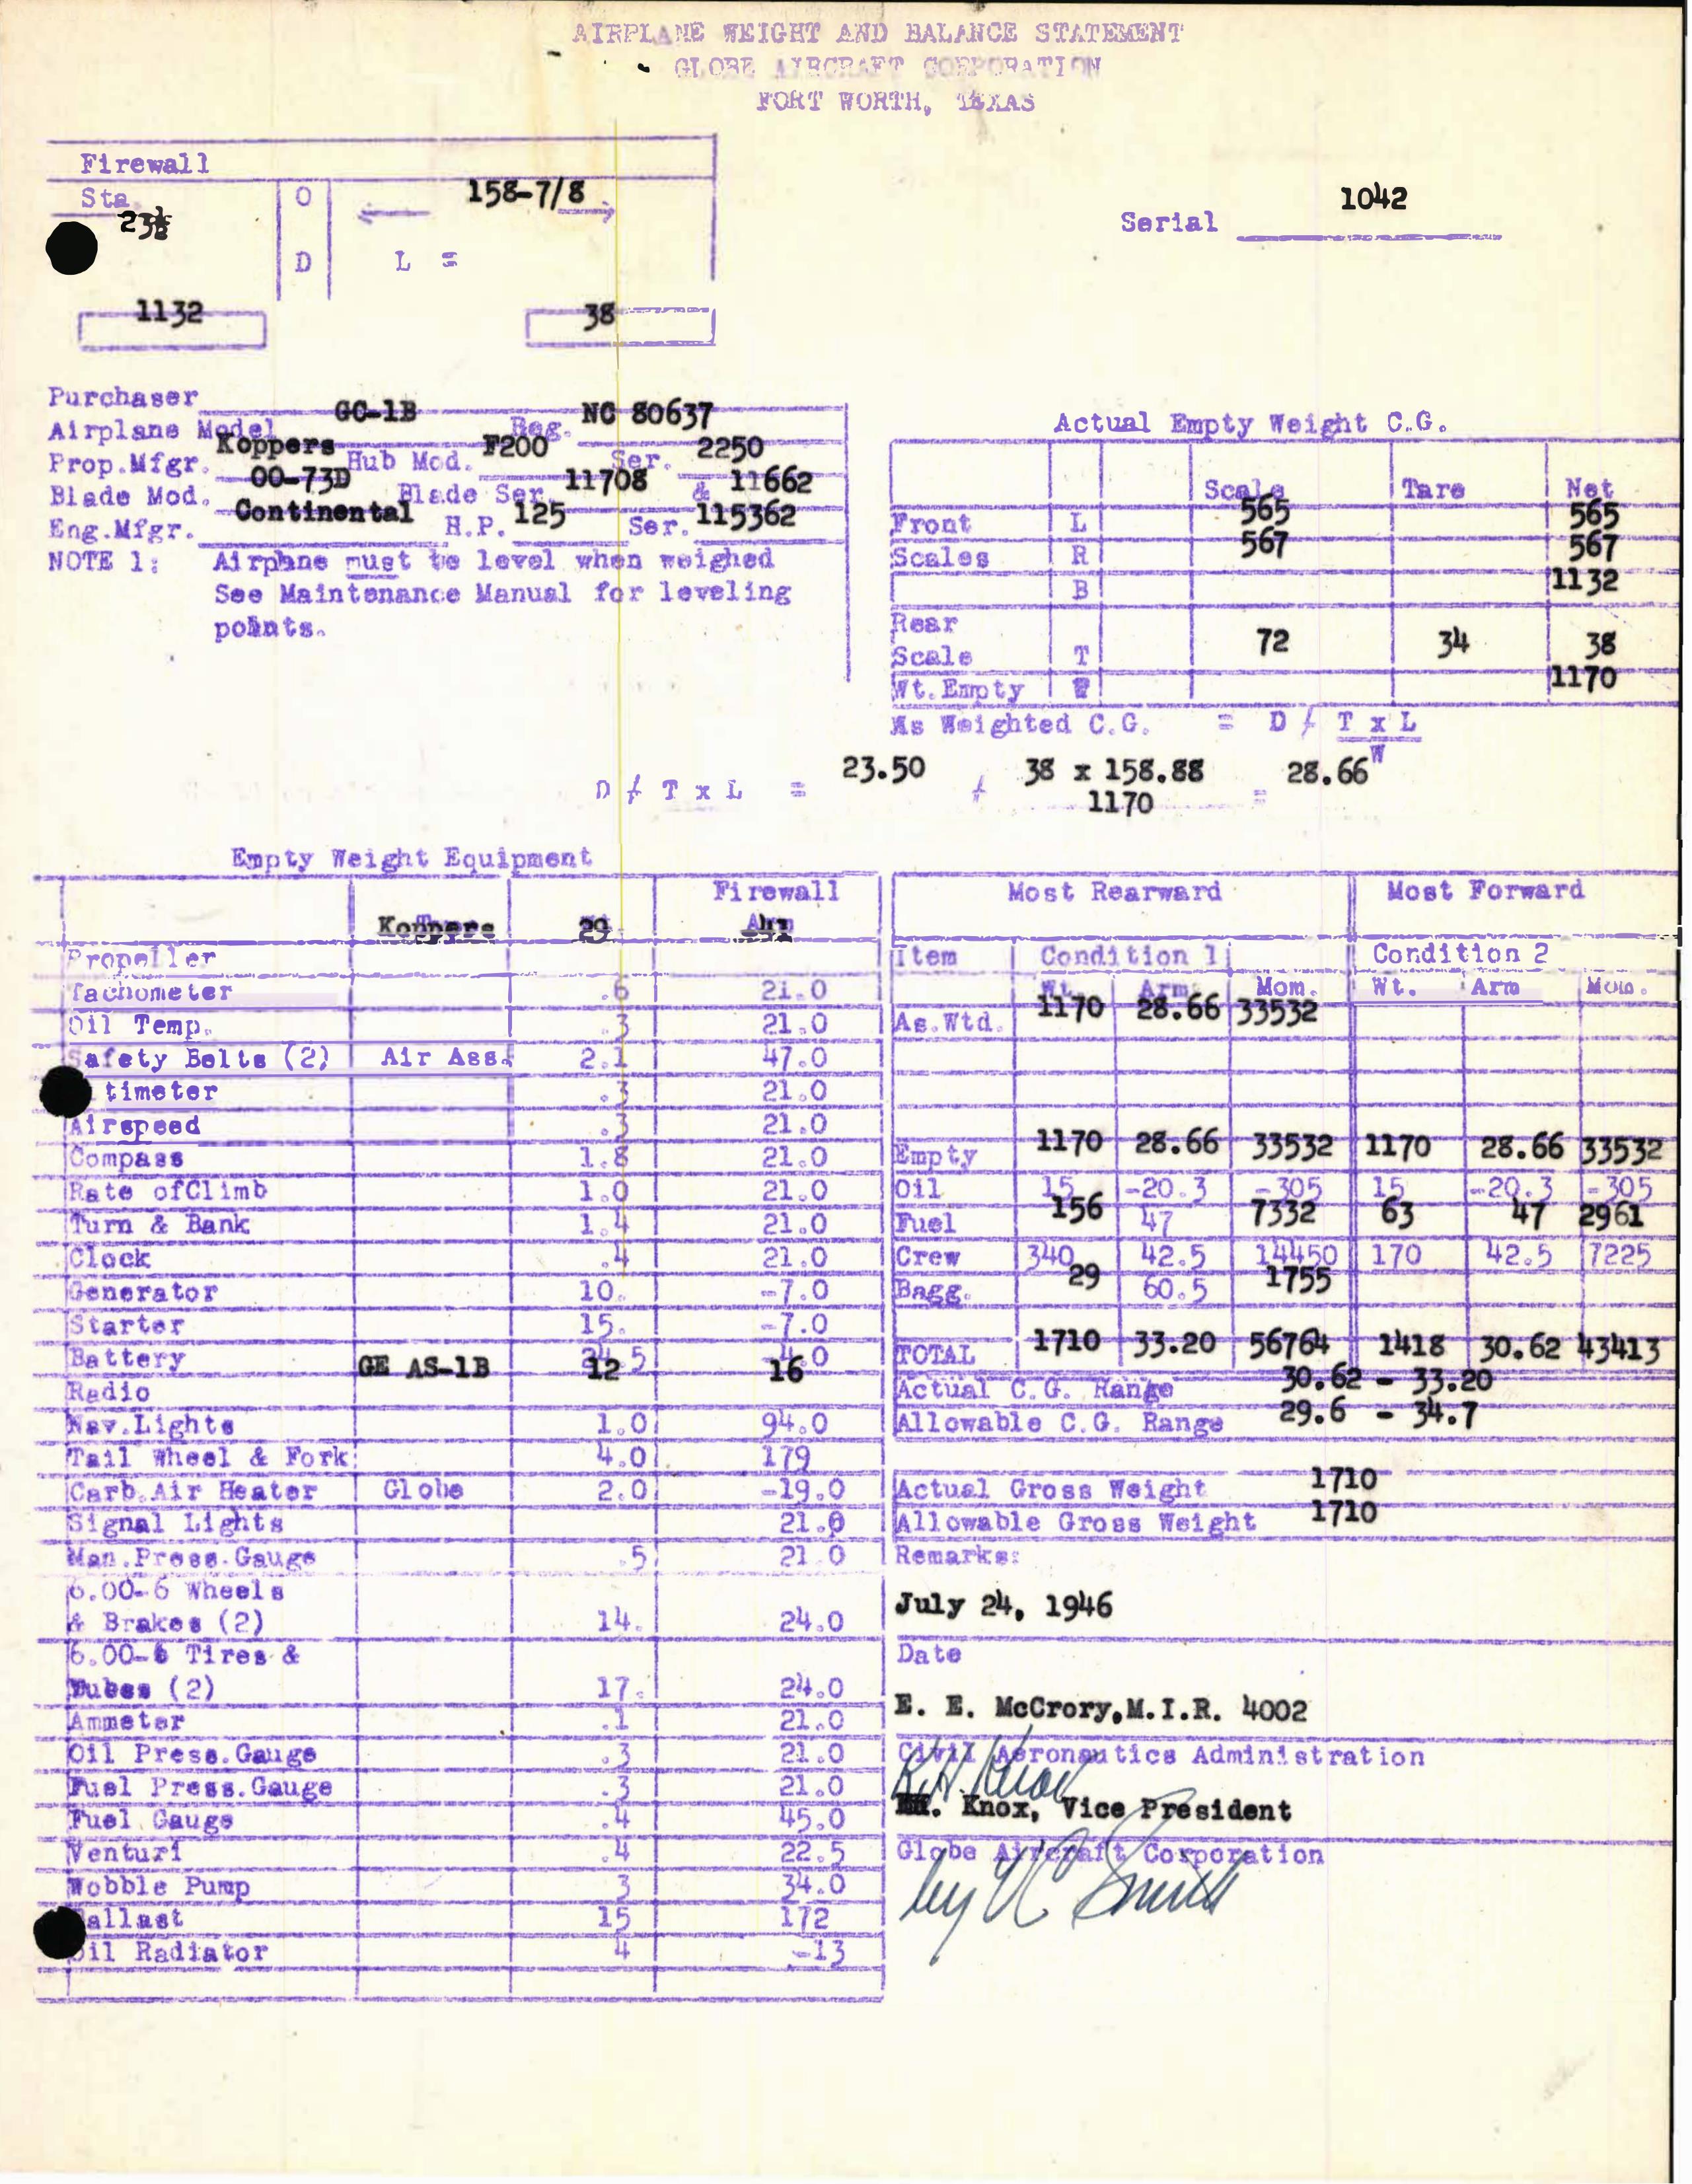 AIRPLANE WEIGHT AND BALANCE STATEMENT
GLOBE AIRCRAFT CORPORATION
FORT WORTH, TEXAS
Firewall
Sta. 23½ O 158-7/8
D L =
Serial 1042
1132 38
Purchaser
Airplane Model GC-1B Reg. NC 80637
Prop.Mfgr. Koppers Hub Mod. F200 Ser. 2250
Blade Mod. 00-73D Blade Ser. 11708 & 11662
Eng.Mfgr. Continental H.P. 125 Ser. 115362
NOTE 1: Airphane must be level when weighed
See Maintenance Manual for leveling
points.
Actual Empty Weight C.G.
Scale Tare Net
Front L 565 565
Scales R 567 567
B 1132
Rear
Scale T 72 34 38
Wt.Empty W 1170
As Weighted C.G. = D ≠ T x L
W
D ≠ T x L = 23.50 ≠ 38 x 158.88 = 28.66
1170
Empty Weight Equipment
Firewall
Koppers 29
Propeller
Tachometer .6 21.0
Oil Temp. .3 21.0
Safety Belts (2) Air Ass. 2.1 47.0
timeter .3 21.0
Airspeed .3 21.0
Compass 1.8 21.0
Rate ofClimb 1.0 21.0
Turn & Bank 1.4 21.0
Clock .4 21.0
Generator 10. -7.0
Starter 15. -7.0
Battery
Radio GE AS-1B 12 16
Nav.Lights 1.0 94.0
Tail Wheel & Fork 4.0 179
Carb.Air Heater Globe 2.0 -19.0
Signal Lights 21.0
Man.Press.Gauge .5 21.0
6.00-6 Wheels
& Brakes (2) 14. 24.0
6.00-6 Tires &
Tubes (2) 17. 24.0
Ammeter .1 21.0
Oil Press.Gauge .3 21.0
Fuel Press.Gauge .3 21.0
Fuel Gauge .4 45.0
Venturi .4 22.5
Wobble Pump 3 34.0
allast 15 172
Oil Radiator 4 -13
Most Rearward Most Forward
Item Condition 1 Condition 2
Wt. Arm Mom. Wt. Arm Mom.
As.Wtd. 1170 28.66 33532
Empty 1170 28.66 33532 1170 28.66 33532
Oil 15 -20.3 -305 15 -20.3 -305
Fuel 156 47 7332 63 47 2961
Crew 340 42.5 14450 170 42.5 7225
Bagg. 29 60.5 1755
TOTAL 1710 33.20 56764 1418 30.62 43413
Actual C.G. Range 30.62 - 33.20
Allowable C.G. Range 29.6 - 34.7
Actual Gross Weight 1710
Allowable Gross Weight 1710
Remarks:
July 24, 1946
Date
E. E. McCrory,M.I.R. 4002
Civil Aeronautics Administration
R.H. Knox
Knox, Vice President
Globe Aircraft Corporation
by V C Smith